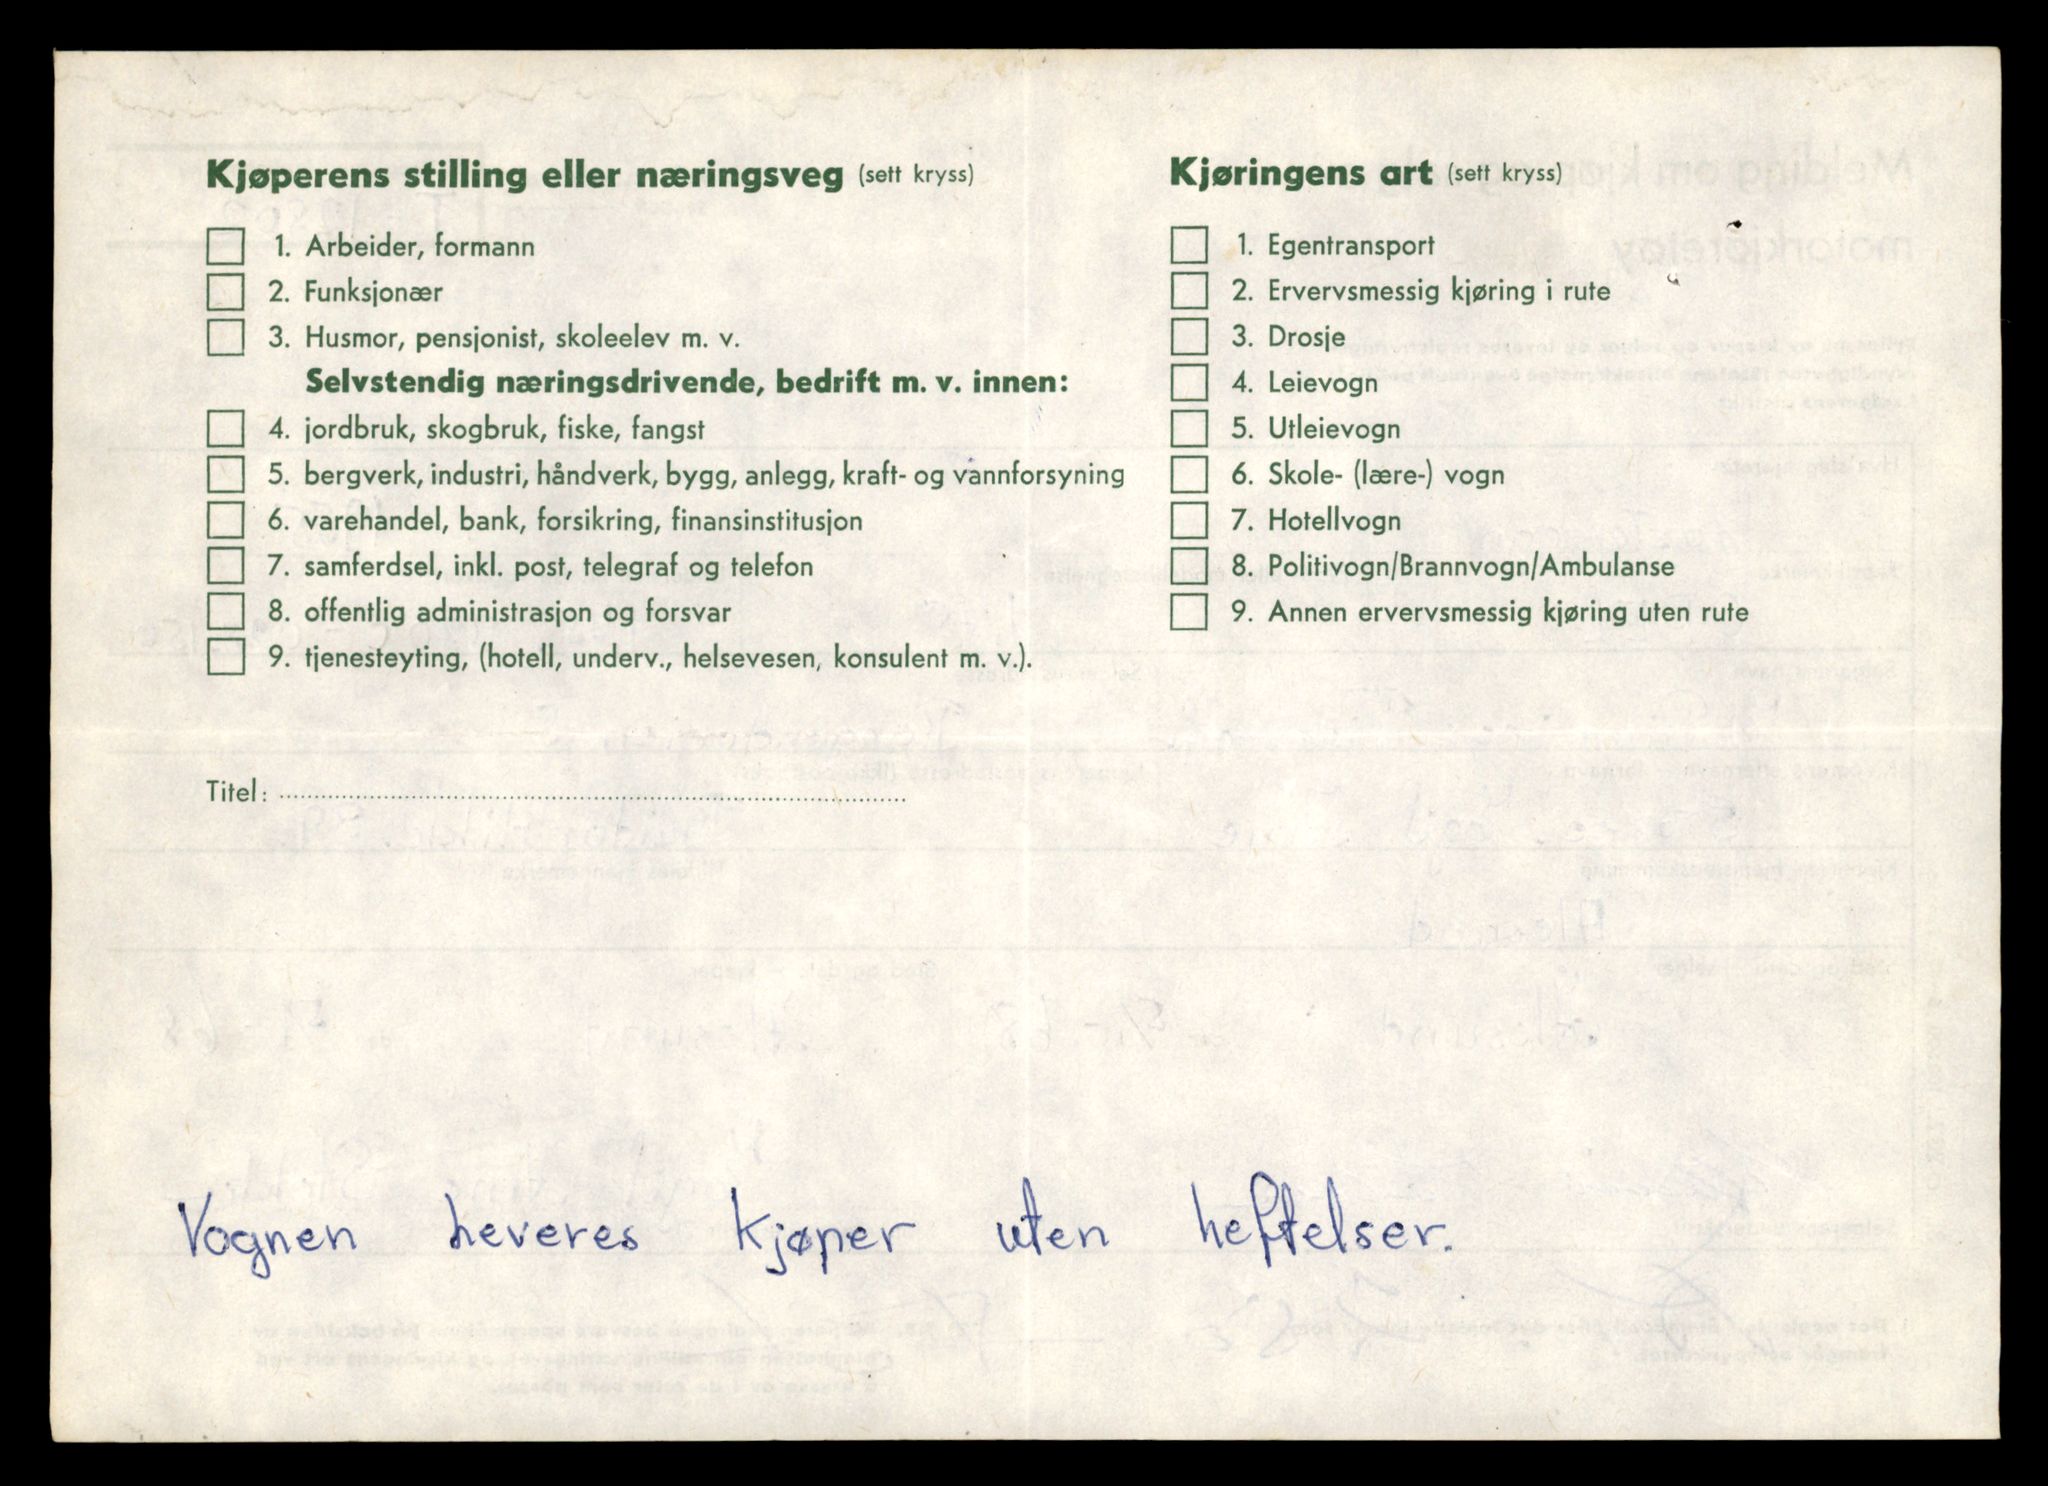 Kjøperens stilling eller næringsveg (sett kryss)
1. Arbeider, formann
2. Funksjonær
3. Husmor, pensjonist, skoleelev m. v.
Selvstendig næringsdrivende, bedrift m. v. innen:
4. jordbruk, skogbruk, fiske, fangst
5. bergverk, industri, håndverk, bygg, anlegg, kraft- og vannforsyning
6. varehandel, bank, forsikring, finansinstitusjon
7. samferdsel, inkl. post, telegraf og telefon
8. offentlig administrasjon og forsvar
9. tjenesteyting, (hotell, underv., helsevesen, konsulent m. v.).
Titel:
Kjøringens art (sett kryss)
1. Egentransport
2. Ervervsmessig kjøring i rute
3. Drosje
4. Leievogn
5. Utleievogn
6. Skole- (lære-) vogn
7. Hotellvogn
8. Politivogn/Brannvogn/Ambulanse
9. Annen ervervsmessig kjøring uten rute
Vognen heveres kjøper uten heftelser.